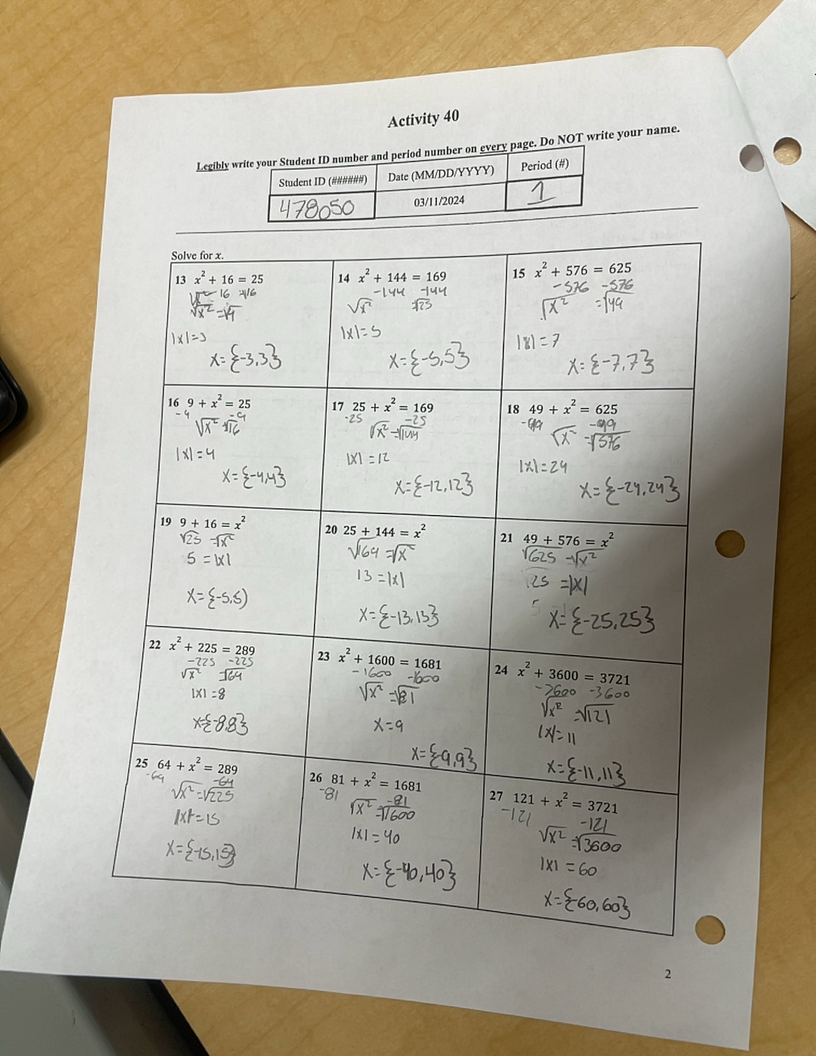 Activity 40
Legibly write your Student ID number and period number on every page. Do NOT write your name.
Student ID (######) Date (MM/DD/YYYY) Period (#)
478050 03/11/2024 1
Solve for x.
13 x² + 16 = 25
√x² = √9
|x|=3
x={-3,3}
14 x² + 144 = 169
-144 -144
√x² √25
|x|=5
x={-5,5}
15 x² + 576 = 625
-576 -576
√x² =√49
|x|=7
x={-7,7}
16 9 + x² = 25
-9 -9
√x² √16
|x|=4
x={-4,4}
17 25 + x² = 169
-25 -25
√x² =√144
|x|=12
x={-12,12}
18 49 + x² = 625
-49 -49
√x² =√576
|x|=24
x={-24,24}
19 9 + 16 = x²
√25 =√x²
5 =|x|
x={-5,5}
20 25 + 144 = x²
√169 =√x²
13 =|x|
x={-13,13}
21 49 + 576 = x²
√625 =√x²
25 =|x|
x={-25,25}
22 x² + 225 = 289
-225 -225
√x² √64
|x|=8
x={-8,8}
23 x² + 1600 = 1681
-1600 -1600
√x² =√81
x=9
x={-9,9}
24 x² + 3600 = 3721
-3600 -3600
√x² =√121
|x|=11
x={-11,11}
25 64 + x² = 289
-64 -64
√x² =√225
|x|=15
x={-15,15}
26 81 + x² = 1681
-81 -81
√x² =√1600
|x|=40
x={-40,40}
27 121 + x² = 3721
-121 -121
√x² =√3600
|x| = 60
x={-60,60}
2